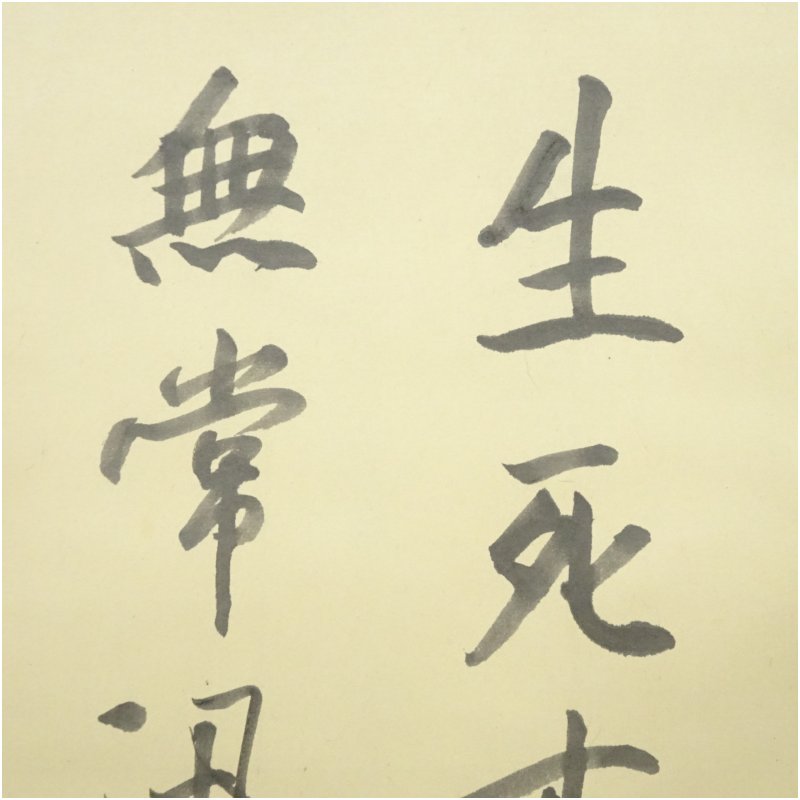 生死
無常